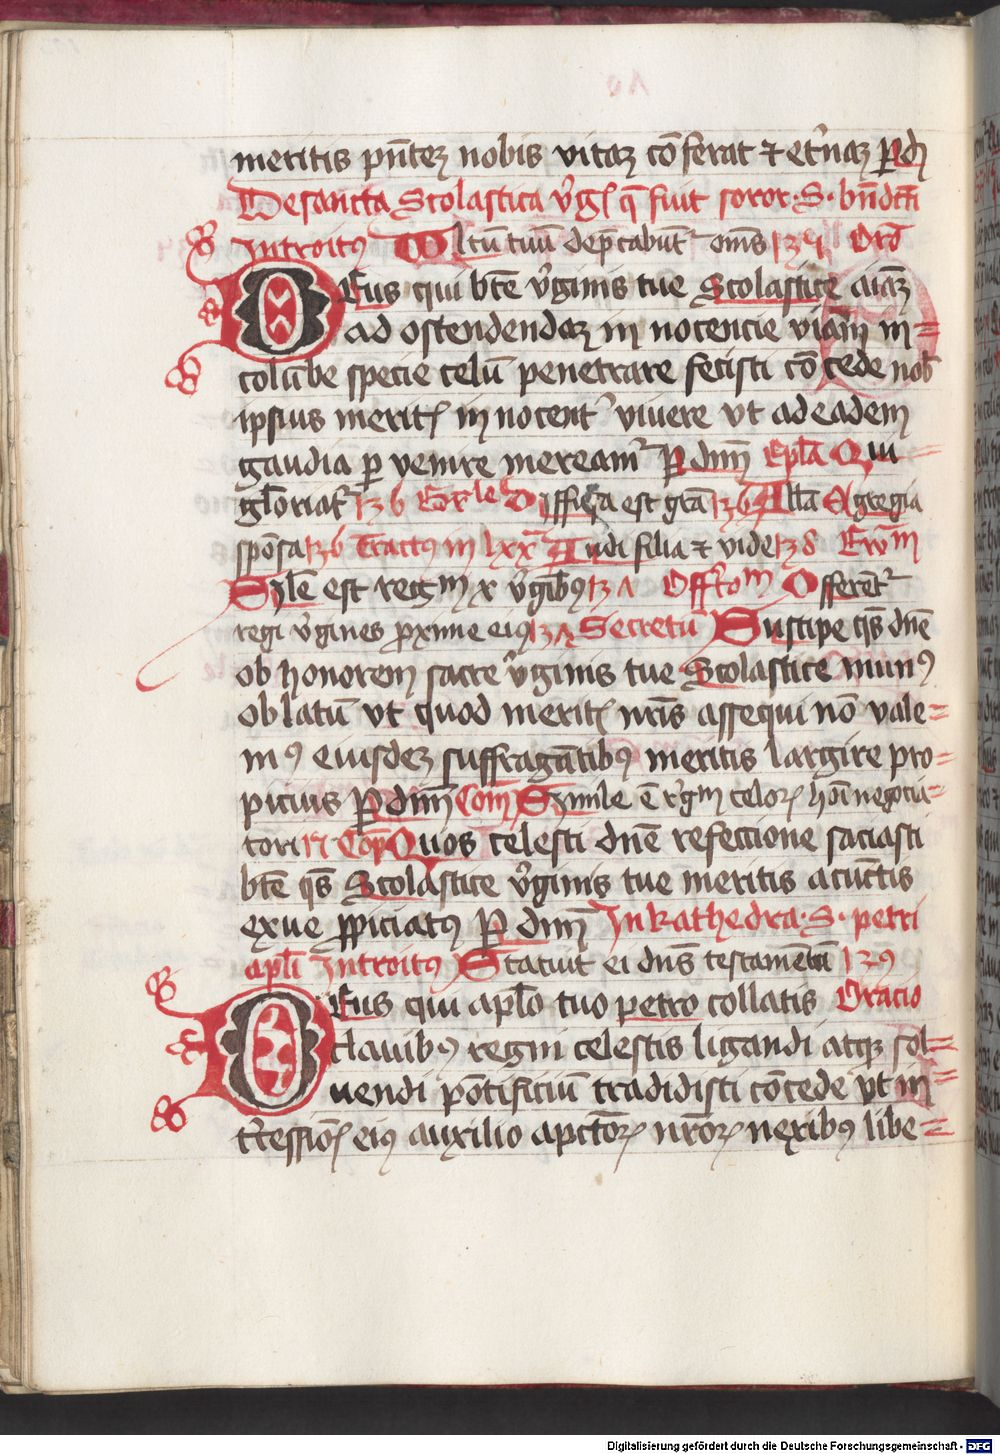 meritis pn̄teꝫ nobis vitaꝫ cōferat ⁊ et'naꝫ ꝑ dm̄
De sancta Scolastica v'gīe q̄ fuit soror · S · bn̄dc̄ti
Introitꝯ Vltū tuū dep̄cabunt' om̄s Orō
DEus qui bt̄e v'ginis tue Scolastice aīaꝫ
ad ostendendaꝫ innocencie viam in=
colūbe specie celū penetrare fecisti cōcede nob̄
ipsius merit͛ innocent' vivere vt ad eadem
gaudia ꝑvenire meream' ꝑ dn̄m Epl̄a Qui
gloriat' Diffusa est gr̄a Allā Egregia
spōsa Tractꝯ in lxx Audi filia ⁊ vide
Sīle est regm v'gibꝯ Offtom Offerent'
regi v'gines proxime eiꝯ Secretū Suscipe qs̄ dn̄e
ob honorem sacre v'ginis tue Scolastice munꝯ
oblatū vt quod merit͛ nr̄is assequi non vale=
mꝯ eiusdeꝫ suffragātibꝯ meritis largire pro=
picius ꝑ dn̄m Com̄ Simile ē r'gm celoꝝ hoī negocia=
tori Cop̄ Quos celesti dn̄e refeccione saciasti
bt̄e qs̄ Scolastice v'ginis tue meritis a cūctis
exue ꝓpiciatꝯ ꝑ dn̄m In kathedra · S · petri
apl̄i Introitꝯ Statuit ei dn̄s testamentū
DEus qui apl̄o tuo petro collatis Oracio
clavibꝯ regni celestis ligandi atqꝫ sol=
vendi pōtificiū tradidisti cōcede vt in
t'cessiōis eiꝯ auxilio a pctōꝝ nr̄oꝝ nexibꝯ libe=
Digitalisierung gefördert durch die Deutsche Forschungsgemeinschaft - DFG